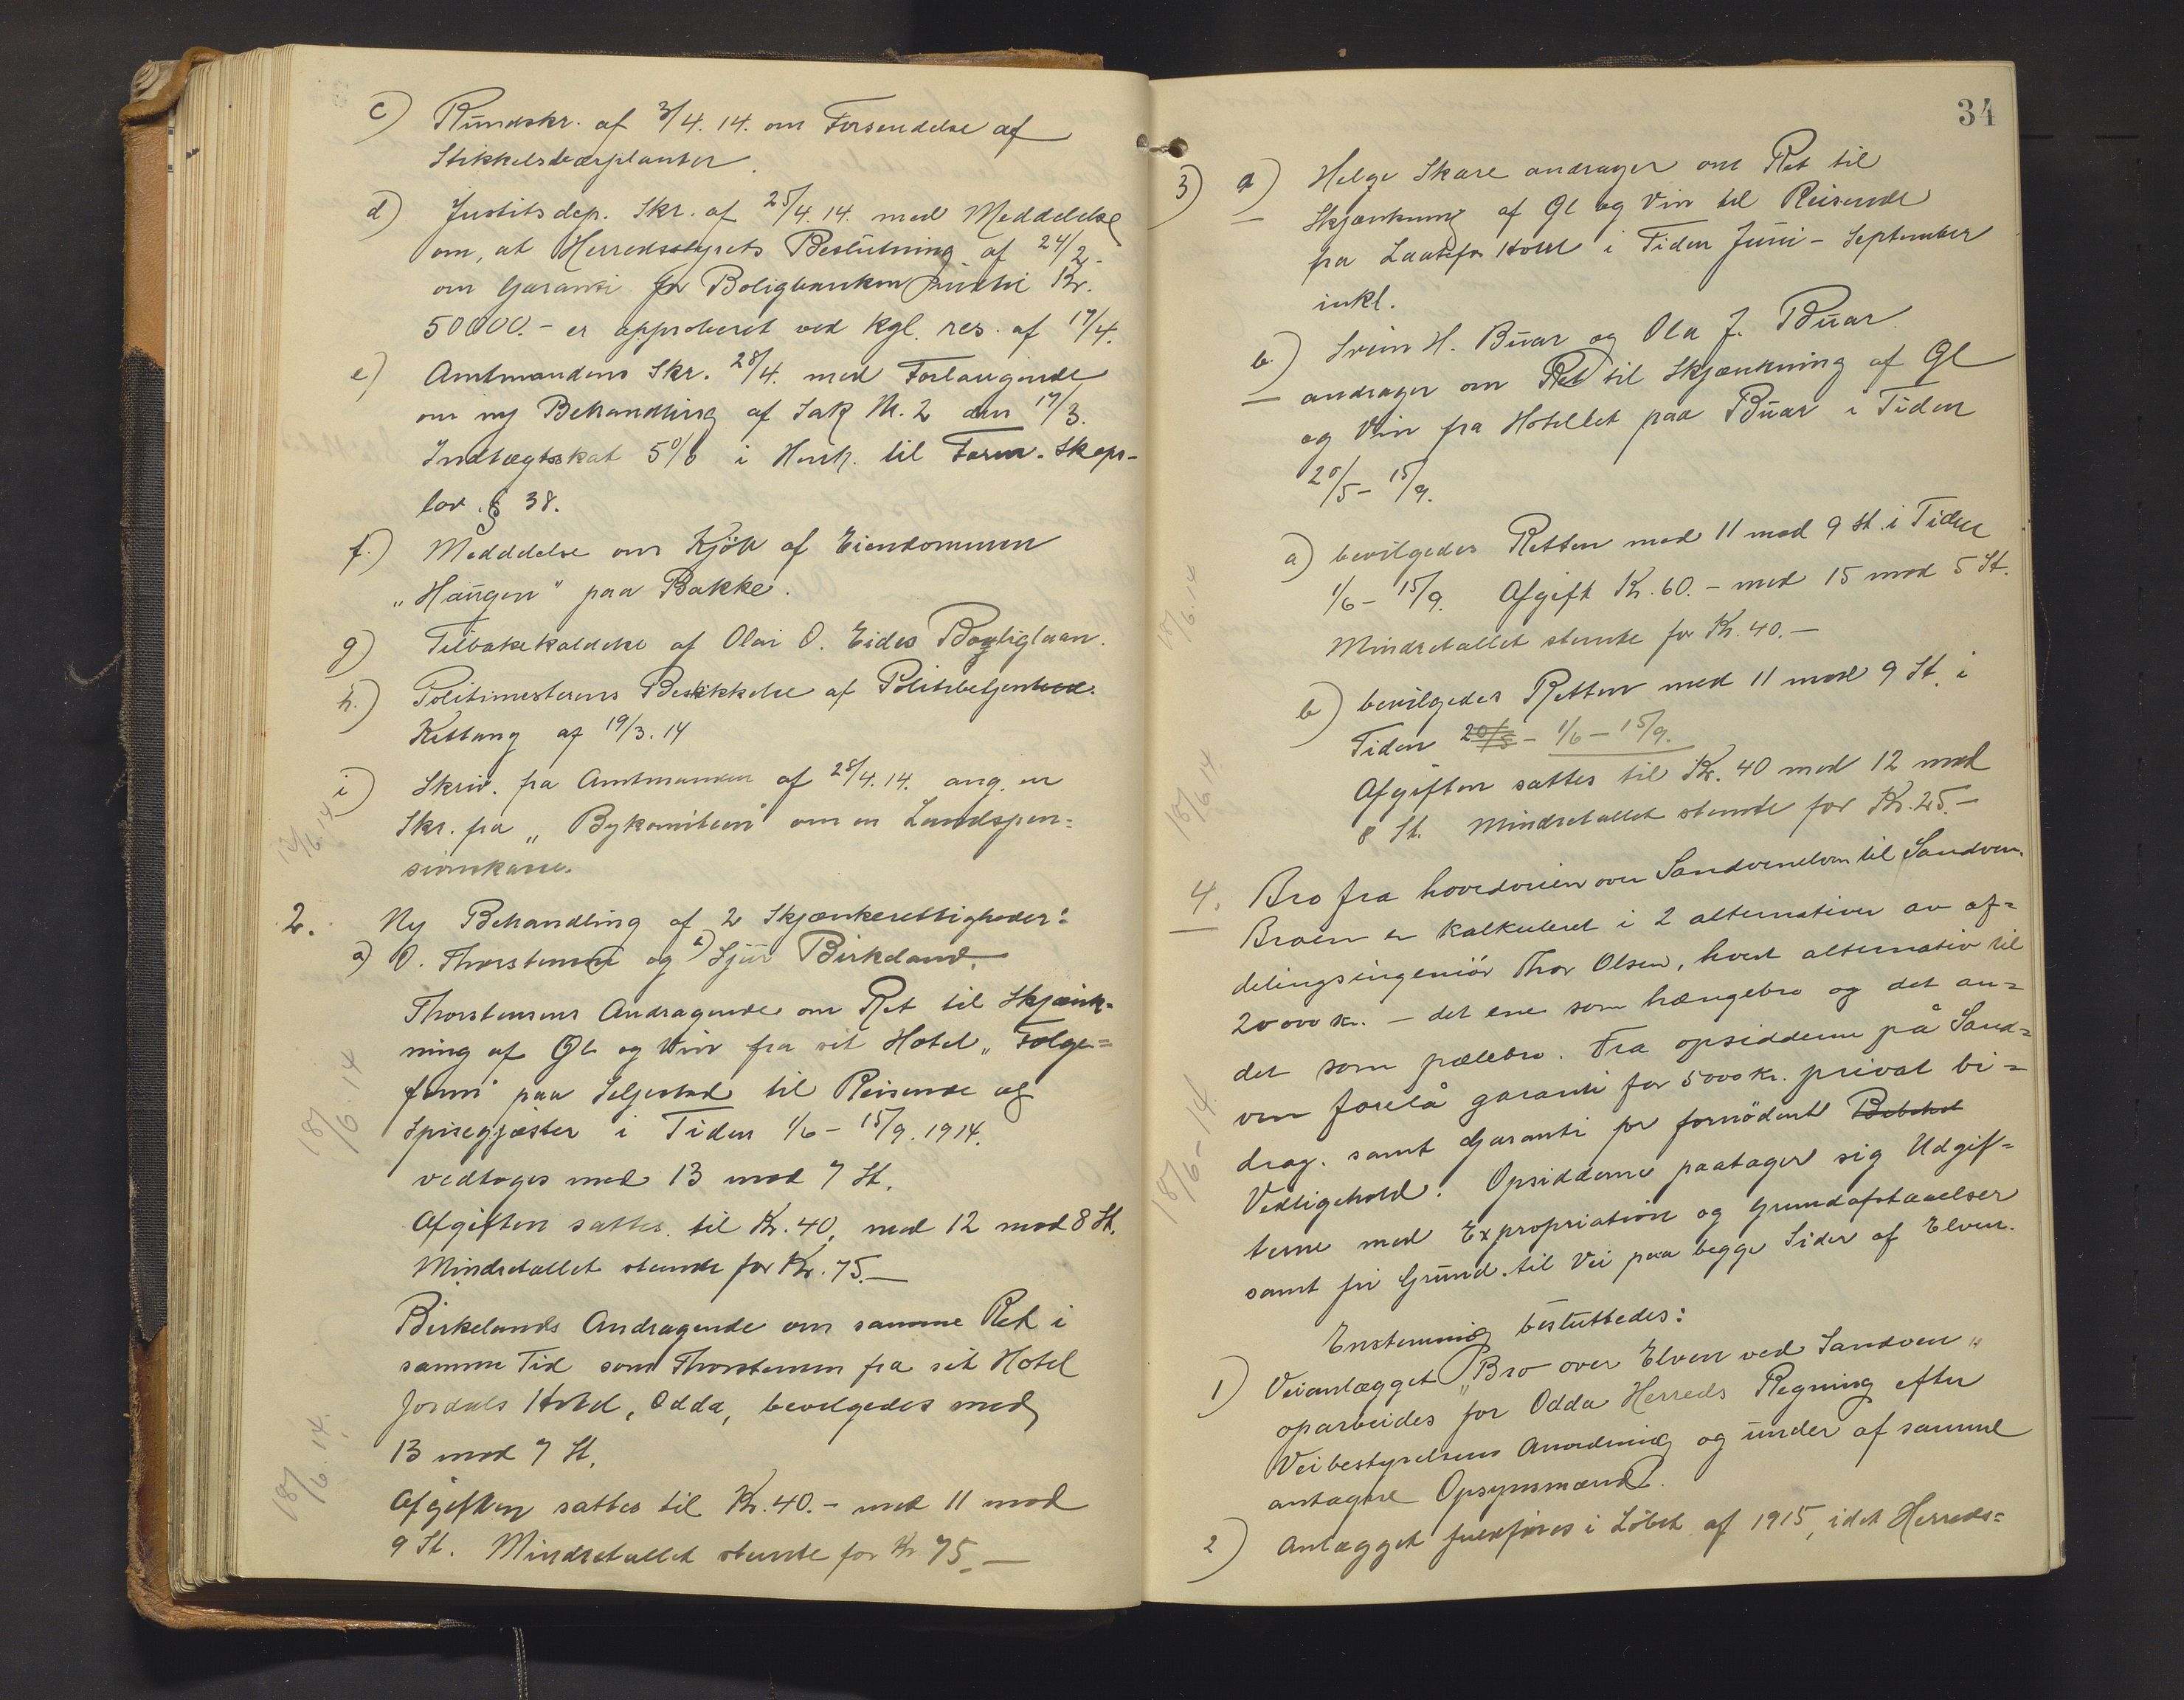 c) Rundskr. af 3/4. 14. om Forsendelse af
Stikkelsbærplanter.
d) Justitsdep. Skr. af 25/4. 14. med Meddelelse
om, at Herredsstyrets Beslutning af 24/2.
om Garanti for Boligbanken indtil Kr.
50000.- er approberet ved kgl. res. af 17/4.
e) Amtmandens Skr. 28/4. med Forlangende
om ny Behandling af Sak Nr. 2 den 17/3.
Indtægtsskat 5% i Henh. til Form. Skaps-
lov. § 38.
f.) Meddelelse om Kjøb af Eiendommen
"Haugen" paa Bakke.
g) Tilbakekaldelse af Olai O. Eides Boliglaan.
h.) Politimesterens Beskikkelse af Politibetjent
Kettang af 19/3. 14
i) Skriv. fra Amtmanden af 28/4. 14. ang. en
Skr. fra "Bykomiteen" om en Landspen=
sionskasse.
2. Ny Behandling af 2 Skjænkerettigheder:
a) O. Thorstensen og b) Sjur Birkeland.
Thorstensens Andragende om Ret til Skjænk=
ning af Øl og Vin fra sit Hotel "Folge=
fonn" paa Seljestad til Reisende og
Spisegjæster i Tiden 1/6 - 15/9. 1914.
vedtoges med 13 mod 7 St.
Afgiften sattes til Kr. 40, med 12 mod 8 St.
Mindretallet stemte for Kr. 75.-
Birkelands Andragende om samme Ret i
samme Tid som Thorstensen fra sit Hotel
Jordals Hotel, Odda, bevilgedes med
13 mod 7 St.
Afgiften sattes til Kr. 40.- med 11 mod
9 St. Mindretallet stemte for Kr 75.-
18/6. 14
18/6. 14
18/6. 14.
34
3) a) Helge Skare andrager om Ret til
Skjænkning af Øl og Vin til Reisende
fra Laatefos Hotel i Tiden Juni - September
inkl.
b.) Svein H. Buar og Ola J. Buar
andrager om Ret til Skjænkning af Øl
og Vin fra Hotellet paa Buar i Tiden
20/5 - 15/9.
a) bevilgedes Retten med 11 mod 9 St. i Tiden
1/6 - 15/9. Afgift Kr. 60.- med 15 mod 5 St.
Mindretallet stemte for Kr. 40.-
b) bevilgedes Retten med 11 mod 9 St. i
Tiden 20/5 - 1/6 - 15/9.
Afgiften sattes til Kr. 40 med 12 mod
8 St. Mindretallet stemte for Kr. 25.-
4. Bro fra hovedveien over Sandvenelven til Sandven.
Broen er kalkuleret i 2 alternativer av af=
delingsingeniør Thor Olsen, hvert alternativ til
20000 kr. - det ene som hængebro og det an=
det som pælebro. Fra opsidderne på Sand=
ven forelå garanti for 5000 kr. privat bi=
drag. samt Garanti for fornødent
Vedligehold. Opsidderne paatager sig Udgif=
terne med Expropriation og Grundafstaaelser
samt fri Grund til Vei paa begge Sider af Elven.
Enstemmig besluttedes:
1) Veianlægget "Bro over Elven ved Sandven"
oparbeides for Odda Herreds Regning efter
Veibestyrelsens Anordning og under af samme
antagne Opsynsmænd.
2) Anlægget fuldføres i Løbet af 1915, idet Herreds=
18/6. 14
18/6 14
18/6 - 14.